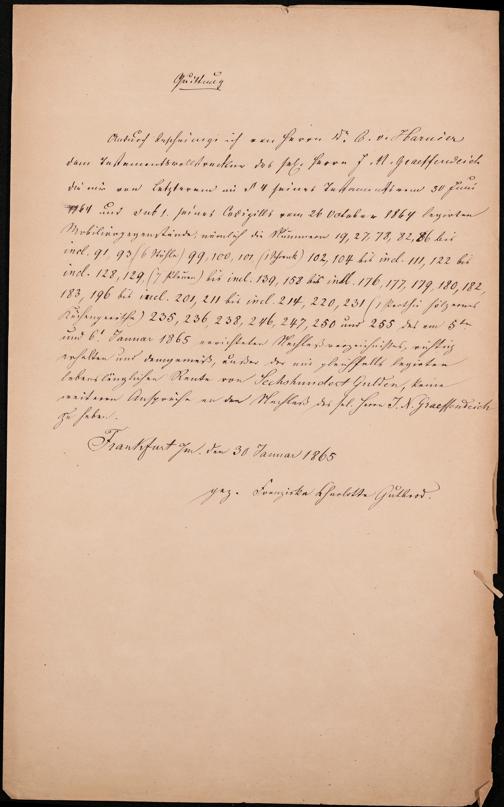 Quittung
Andurch bescheinige ich von Herrn Dr. v. Harnier
dem Testamentsvollstrecker des sel. Herrn J. N. Graeffendeich
die mir von Letzterem in § 4 seines Testaments vom 30 Juni
1864 und sub 1. seines Codizills vom 26 October 1864 legirten
Mobiliargegenstände, nämlich die Nummern 19, 27, 78, 82, 86 bis
incl. 91, 93 (6 Stühle) 99, 100, 101 (1 Schrank) 102, 104 bis incl. 111, 122 bis
incl. 128, 129, (7 ) bis incl. 139, 158 bis incl. 176, 177, 179, 180, 182,
183, 196 bis incl. 201, 211 bis incl. 214, 220, 231 (1 hölzernes
Küchengeräthe) 235, 236, 238, 246, 247, 250 und 255 des am 5ten
und 6t. Januar 1865 errichteten Nachlassverzeichnisses, richtig
erhalten und demgemäß, außer der mir gleichfalls legirten
lebenslänglichen Rente von Sechshundert Gulden, keine
weiteren Ansprüche an den Nachlaß des sel. Herrn J. N. Graeffendeich
zu haben.
Frankfurt a/m. den 30 Januar 1865
gez. Franziska Charlotte